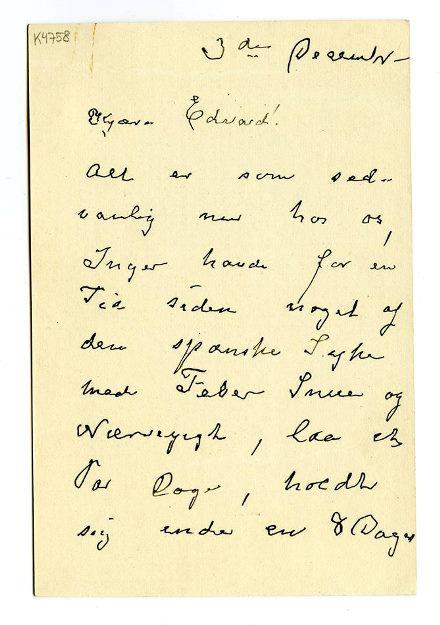 K4758
3die December
Kjære Edvard!
Alt er som sed-
vanlig nu hos os,
Inger havde for en
Tid siden noget af
den spanske Syge
med Feber Snue og
, laa et
Par Dage, holdt
sig inde en 8 Dages